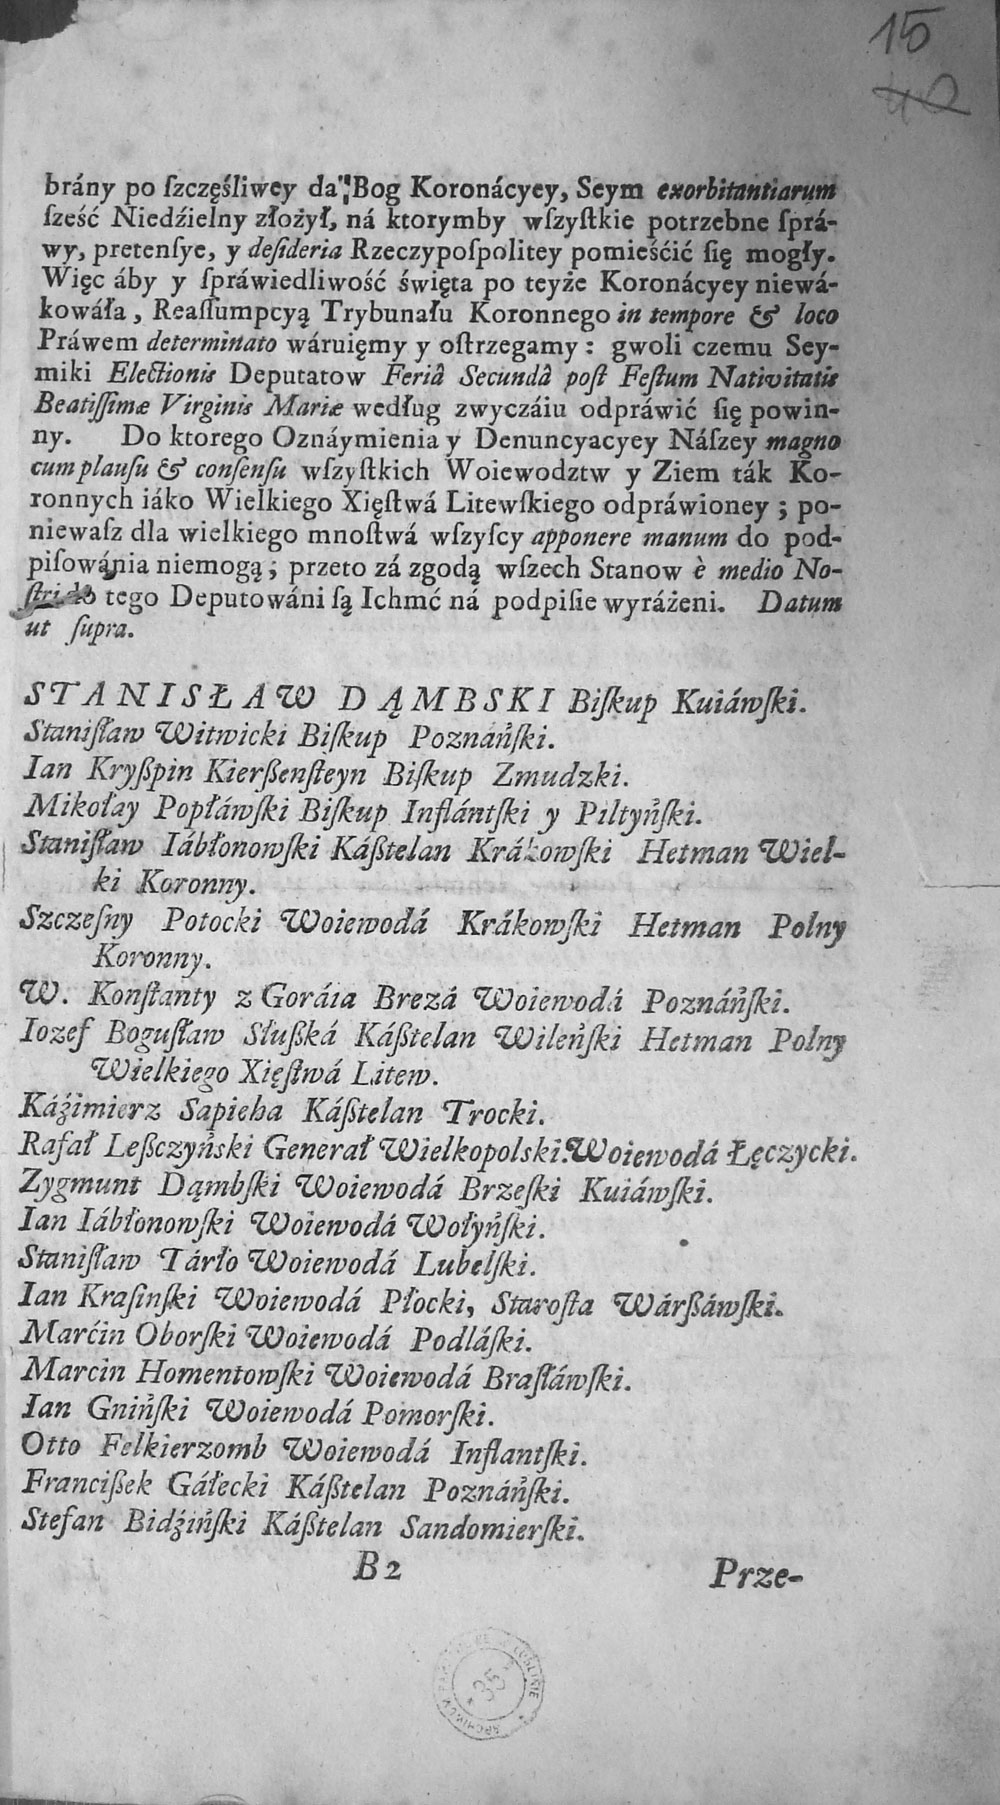 15
40
brány po ſzczęśliwey da Bog Koronácyey, Seym exorbitantiarum
ſześć Niedźielny złożył, ná ktorymby wſzyſtkie potrzebne ſprá-
wy, pretenſye, y deſideria Rzeczypoſpolitey pomieśćić ſię mogły.
Więc áby y ſpráwiedliwość święta po teyże Koronácyey niewá-
kowáła, Reaſſumpcyą Trybunału Koronnego in tempore & loco
Práwem determinato wáruięmy y oſtrzegamy: gwoli czemu Sey-
miki Electionis Deputatow Feriâ Secundâ poſt Feſtum Nativitatis
Beatiſſimæ Virginis Mariæ według zwyczáiu odpráwić ſię powin-
ny. Do ktorego Oznáymienia y Denuncyacyey Nászey magno
cum plauſu & conſenſu wſzyſtkich Woiewodztw y Ziem ták Ko-
ronnych iáko Wielkiego Xięſtwá Litewſkiego odpráwioney; po-
niewaſz dla wielkiego mnoſtwá wſzyſcy apponere manum do pod-
piſowánia niemogą; przeto zá zgodą wſzech Stanow è medio No-
ſtri do tego Deputowáni ſą Ichmć ná podpiſie wyráżeni. Datum
ut ſupra.
STANISŁAW DĄMBSKI Biſkup Kuiáwſki.
Staniſław Witwicki Biſkup Poznáńſki.
Ian Kryßpin Kierßenſteyn Biſkup Zmudzki.
Mikołay Popłáwſki Biſkup Inflántſki y Piltyńſki.
Staniſław Iábłonowſki Káßtelan Krákowſki Hetman Wiel-
ki Koronny.
Szczeſny Potocki Woiewodá Krákowſki Hetman Polny
Koronny.
W. Konſtanty z Goráia Brezá Woiewodá Poznáńſki.
Iozef Boguſław Słußká Káßtelan Wileńſki Hetman Polny
Wielkiego Xięſtwá Litew.
Káźimierz Sapieha Káßtelan Trocki.
Rafał Leßczyńſki Generał Wielkopolſki. Woiewodá Łęczycki.
Zygmunt Dąmbſki Woiewodá Brzeſki Kuiáwſki.
Ian Iábłonowſki Woiewodá Wołyńſki.
Staniſław Tárło Woiewodá Lubelſki.
Ian Kraſinſki Woiewodá Płocki, Staroſta Wárßáwſki.
Marćin Oborſki Woiewodá Podláſki.
Marcin Homentowſki Woiewodá Braſláwſki.
Ian Gnińſki Woiewodá Pomorſki.
Otto Felkierzomb Woiewodá Inflantſki.
Francißek Gáłecki Káßtelan Poznáńſki.
Stefan Bidźińſki Káßtelan Sandomierſki.
B 2 Prze-
35